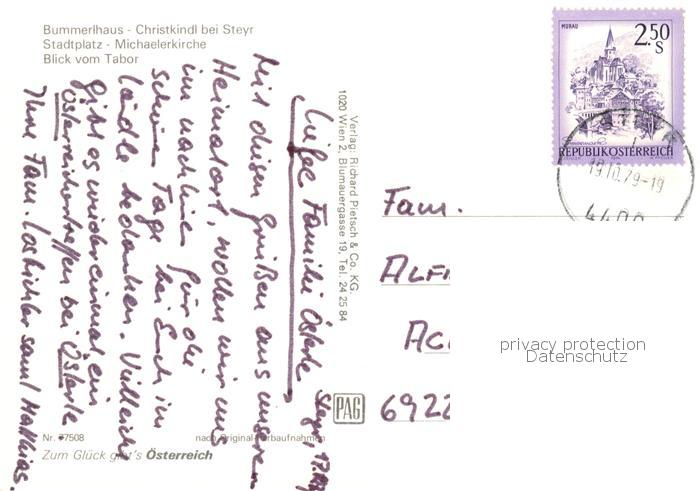 Bummerlhaus - Christkindl bei Steyr
Stadtplatz - Michaelerkirche
Blick vom Tabor
MURAU
2.50
S
REPUBLIK ÖSTERREICH
19.10.79-19
4400
Verlag: Richard Pietsch & Co. KG.
1020 Wien 2, Blumauergasse 19, Tel. 24 25 84
Liebe Familie Österle
Mit diesen Grüßen aus unserem
Heimatort, wollen wir uns
im nachhinein für die
schönen Tage bei Euch im
Ländle bedanken. Vielleicht
gibt es wieder einmal ein
Österreichertreffen bei Österle.
Ihre Fam. samt Matthias.
Fam.
ALF
AC
6922
privacy protection
Datenschutz
PAG
Nr. 77508
nach Original-Farbaufnahmen
Zum Glück gibt's Österreich